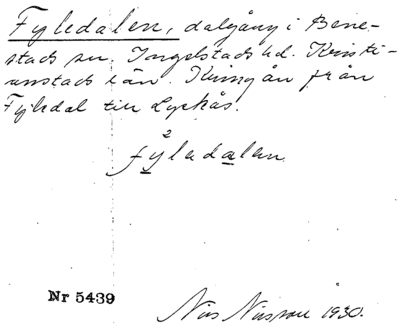 Fyledalen, dalgång i Bene-
stads sn. Ingelstads hd. Kristi-
anstads län. Kring ån från
Fyledal till Lyckås.
2
fyledalen
Nr 5439
Nils Nilsson 1930.